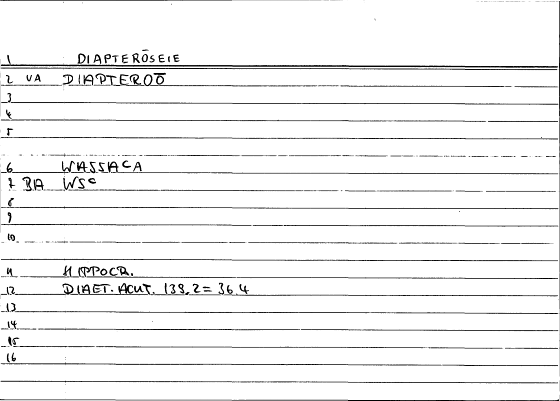 1 DIAPTERŌSEIE
2 VA DIAPTEROŌ
3
4
5
6 WASSACA
7 BA WSC
8
9
10
11 HIPPOCR.
12 DIAET. ACUT. 139,2 = 36.4
13
14
15
16